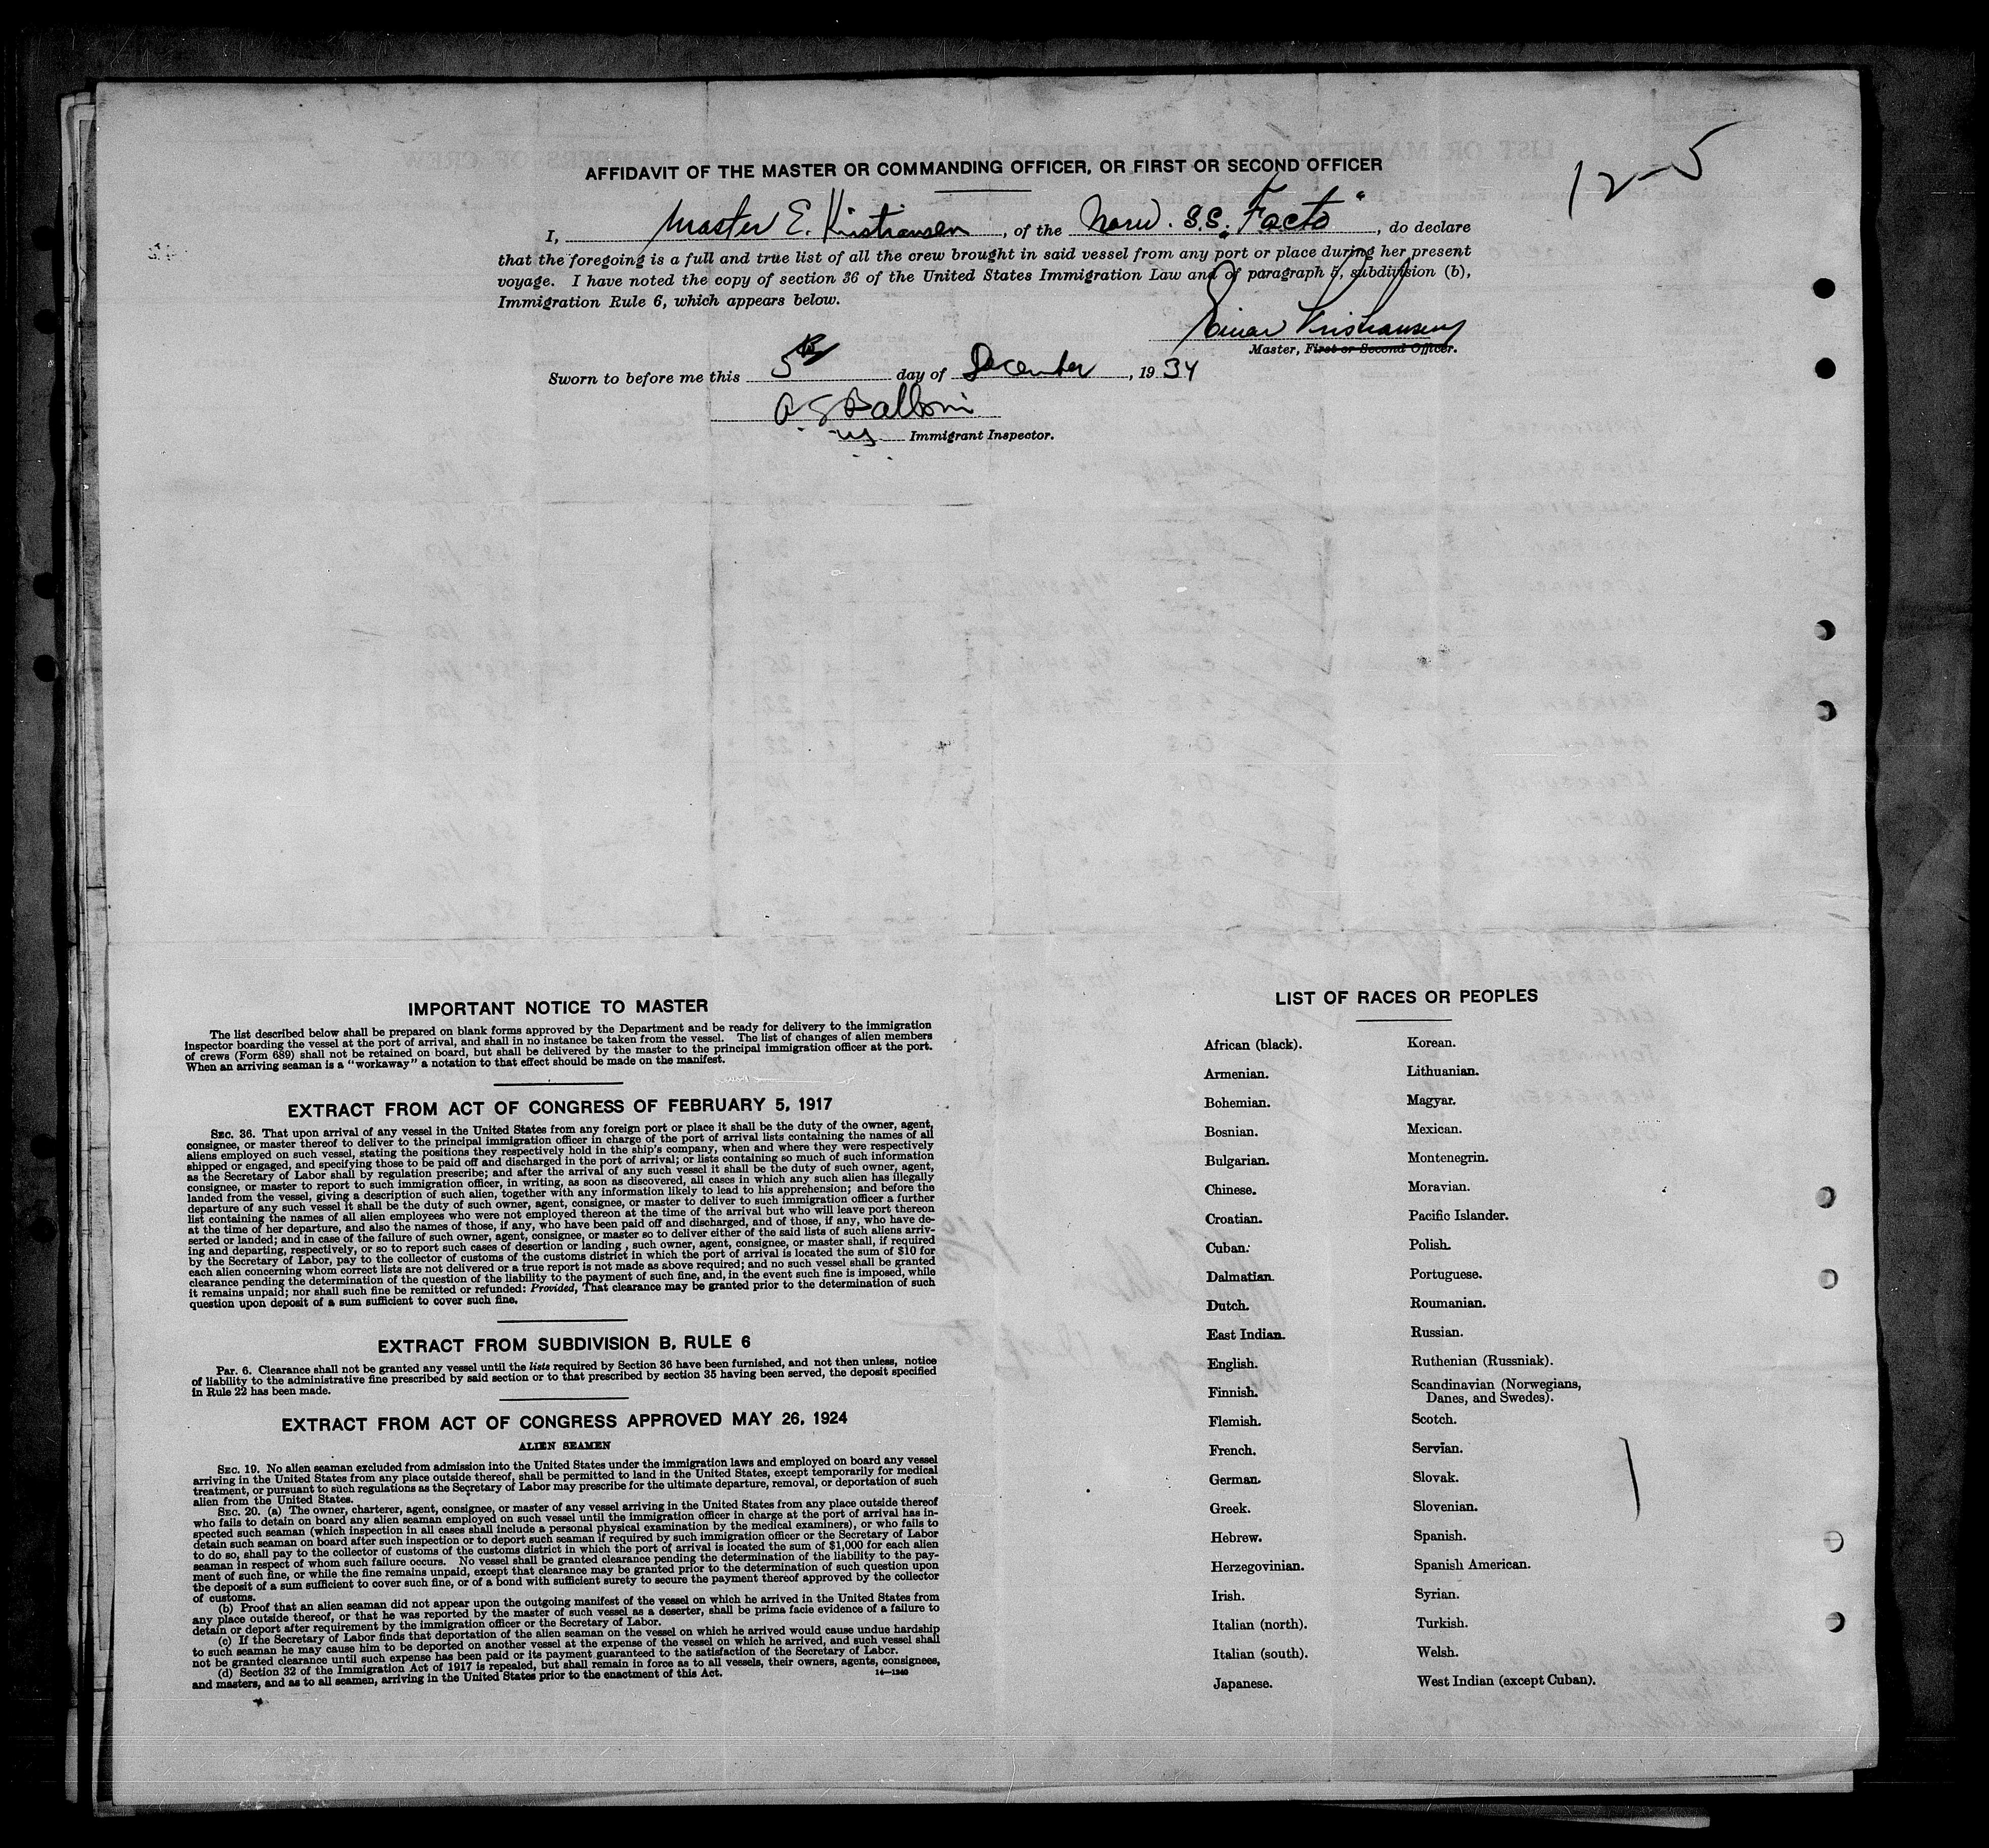 AFFIDAVIT OF THE MASTER OR COMMANDING OFFICER, OR FIRST OR SECOND OFFICER
12-5
I, Master E. Kristiansen, of the Norw. S.S. "Facto", do declare
that the foregoing is a full and true list of all the crew brought in said vessel from any port or place during her present
voyage. I have noted the copy of section 36 of the United States Immigration Law and of paragraph 5, subdivision (b),
Immigration Rule 6, which appears below.
Einar Kristiansen
Master, First or Second Officer.
Sworn to before me this 5th day of December, 1934
Immigrant Inspector.
IMPORTANT NOTICE TO MASTER
The list described below shall be prepared on blank forms approved by the Department and be ready for delivery to the immigration
inspector boarding the vessel at the port of arrival, and shall in no instance be taken from the vessel. The list of changes of alien members
of crews (Form 689) shall not be retained on board, but shall be delivered by the master to the principal immigration officer at the port.
When an arriving seaman is a "workaway" a notation to that effect should be made on the manifest.
EXTRACT FROM ACT OF CONGRESS OF FEBRUARY 5, 1917
SEC. 36. That upon arrival of any vessel in the United States from any foreign port or place it shall be the duty of the owner, agent,
consignee, or master thereof to deliver to the principal immigration officer in charge of the port of arrival lists containing the names of all
aliens employed on such vessel, stating the positions they respectively hold in the ship's company, when and where they were respectively
shipped or engaged, and specifying those to be paid off and discharged in the port of arrival; or lists containing so much of such information
as the Secretary of Labor shall by regulation prescribe; and after the arrival of any such vessel it shall be the duty of such owner, agent,
consignee, or master to report to such immigration officer, in writing, as soon as discovered, all cases in which any such alien has illegally
landed from the vessel, giving a description of such alien, together with any information likely to lead to his apprehension; and before the
departure of any such vessel it shall be the duty of such owner, agent, consignee, or master to deliver to such immigration officer a further
list containing the names of all alien employees who were not employed thereon at the time of the arrival but who will leave port thereon
at the time of her departure, and also the names of those, if any, who have been paid off and discharged, and of those, if any, who have de-
serted or landed; and in case of the failure of such owner, agent, consignee, or master so to deliver either of the said lists of such aliens arriv-
ing and departing, respectively, or so to report such cases of desertion or landing, such owner, agent, consignee, or master shall, if required
by the Secretary of Labor, pay to the collector of customs of the customs district in which the port of arrival is located the sum of $10 for
each alien concerning whom correct lists are not delivered or a true report is not made as above required; and no such vessel shall be granted
clearance pending the determination of the question of the liability to the payment of such fine, and, in the event such fine is imposed, while
it remains unpaid; nor shall such fine be remitted or refunded: Provided, That clearance may be granted prior to the determination of such
question upon deposit of a sum sufficient to cover such fine.
EXTRACT FROM SUBDIVISION B, RULE 6
Par. 6. Clearance shall not be granted any vessel until the lists required by Section 36 have been furnished, and not then unless, notice
of liability to the administrative fine prescribed by said section or to that prescribed by section 35 having been served, the deposit specified
in Rule 22 has been made.
EXTRACT FROM ACT OF CONGRESS APPROVED MAY 26, 1924
ALIEN SEAMEN
SEC. 19. No alien seaman excluded from admission into the United States under the immigration laws and employed on board any vessel
arriving in the United States from any place outside thereof, shall be permitted to land in the United States, except temporarily for medical
treatment, or pursuant to such regulations as the Secretary of Labor may prescribe for the ultimate departure, removal, or deportation of such
alien from the United States.
SEC. 20. (a) The owner, charterer, agent, consignee, or master of any vessel arriving in the United States from any place outside thereof
who fails to detain on board any alien seaman employed on such vessel until the immigration officer in charge at the port of arrival has in-
spected such seaman (which inspection in all cases shall include a personal physical examination by the medical examiners), or who fails to
detain such seaman on board after such inspection or to deport such seaman if required by such immigration officer or the Secretary of Labor
to do so, shall pay to the collector of customs of the customs district in which the port of arrival is located the sum of $1,000 for each alien
seaman in respect of whom such failure occurs. No vessel shall be granted clearance pending the determination of the liability to the pay-
ment of such fine, or while the fine remains unpaid, except that clearance may be granted prior to the determination of such question upon
the deposit of a sum sufficient to cover such fine, or of a bond with sufficient surety to secure the payment thereof approved by the collector
of customs.
(b) Proof that an alien seaman did not appear upon the outgoing manifest of the vessel on which he arrived in the United States from
any place outside thereof, or that he was reported by the master of such vessel as a deserter, shall be prima facie evidence of a failure to
detain or deport after requirement by the immigration officer or the Secretary of Labor.
(c) If the Secretary of Labor finds that deportation of the alien seaman on the vessel on which he arrived would cause undue hardship
to such seaman he may cause him to be deported on another vessel at the expense of the vessel on which he arrived, and such vessel shall
not be granted clearance until such expense has been paid or its payment guaranteed to the satisfaction of the Secretary of Labor.
(d) Section 32 of the Immigration Act of 1917 is repealed, but shall remain in force as to all vessels, their owners, agents, consignees,
and masters, and as to all seamen, arriving in the United States prior to the enactment of this Act. 14—1240
LIST OF RACES OR PEOPLES
African (black).
Armenian.
Bohemian.
Bosnian.
Bulgarian.
Chinese.
Croatian.
Cuban.
Dalmatian.
Dutch.
East Indian.
English.
Finnish.
Flemish.
French.
German.
Greek.
Hebrew.
Herzegovinian.
Irish.
Italian (north).
Italian (south).
Japanese.
Korean.
Lithuanian.
Magyar.
Mexican.
Montenegrin.
Moravian.
Pacific Islander.
Polish.
Portuguese.
Roumanian.
Russian.
Ruthenian (Russniak).
Scandinavian (Norwegians,
Danes, and Swedes).
Scotch.
Servian.
Slovak.
Slovenian.
Spanish.
Spanish American.
Syrian.
Turkish.
Welsh.
West Indian (except Cuban).